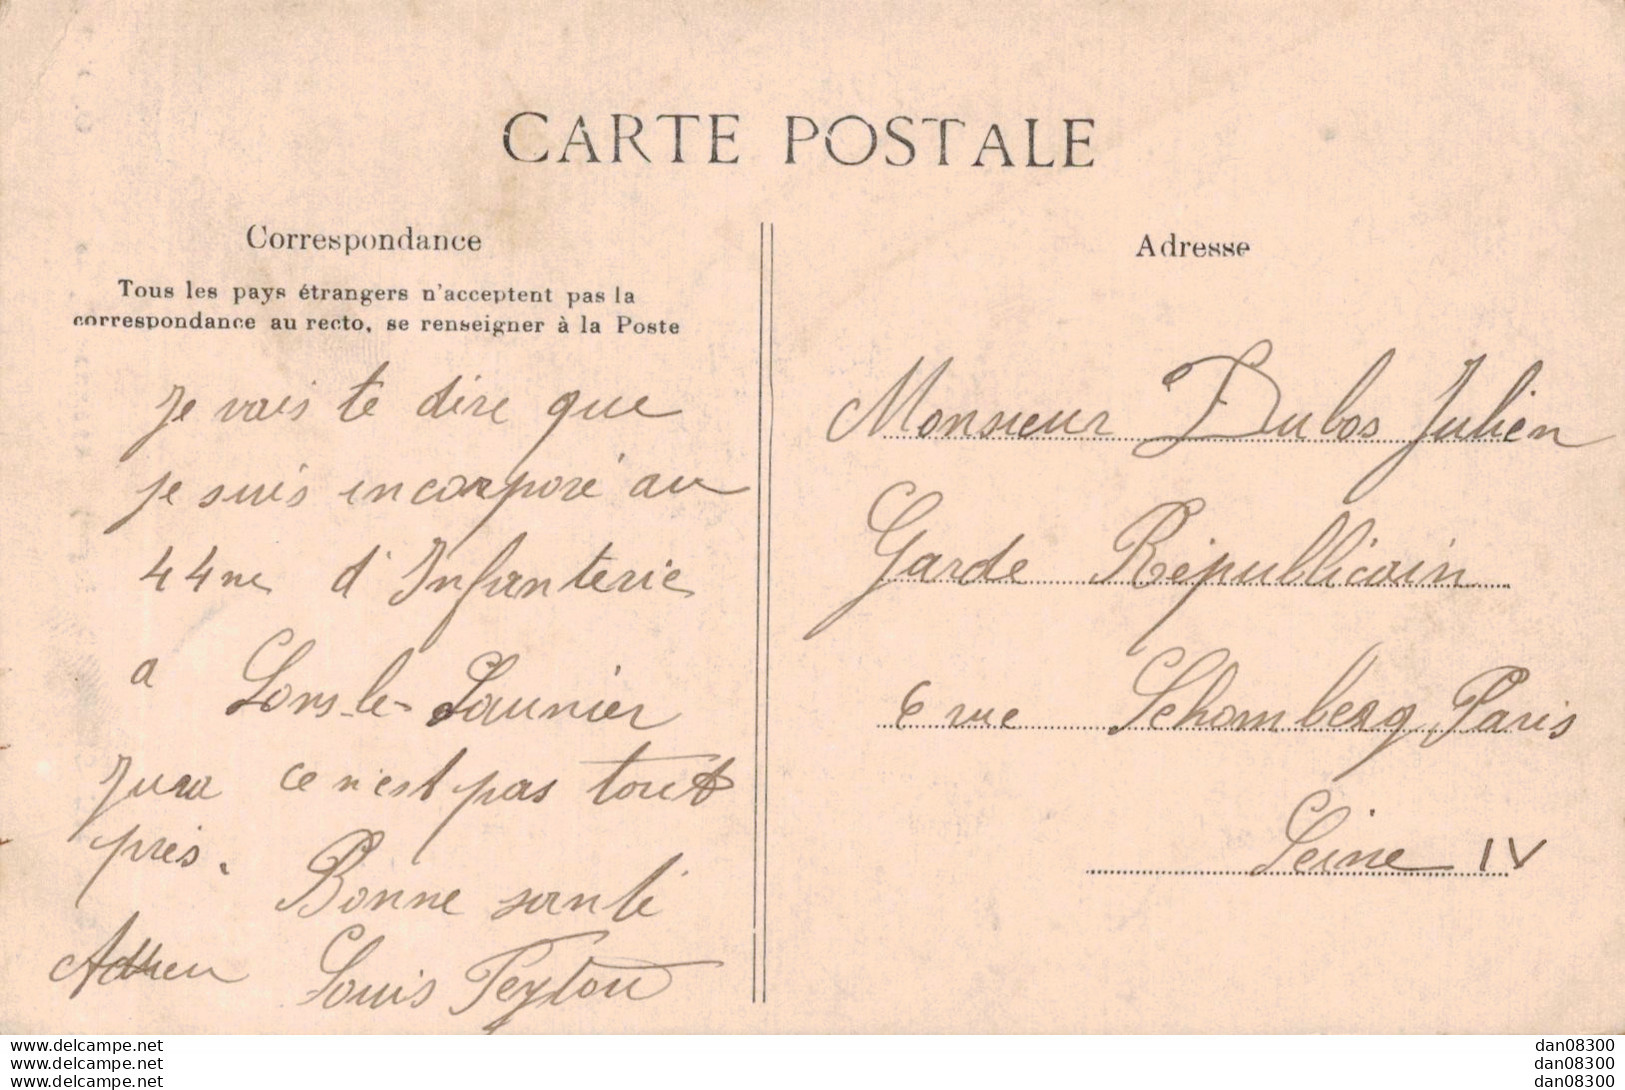 CARTE POSTALE
Correspondance
Tous les pays étrangers n'acceptent pas la
correspondance au recto, se renseigner à la Poste
Je vais te dire que
je suis incorporé au
44me d'Infanterie
a Lons-le-Saunier
Jura ce n'est pas tout
près.
Bonne santé
Adieu Louis Peylou
Adresse
Monsieur Dubos Julien
Garde Républicain
6 rue Schomberg Paris
Seine IV
www.delcampe.net
www.delcampe.net
www.delcampe.net
dan08300
dan08300
dan08300